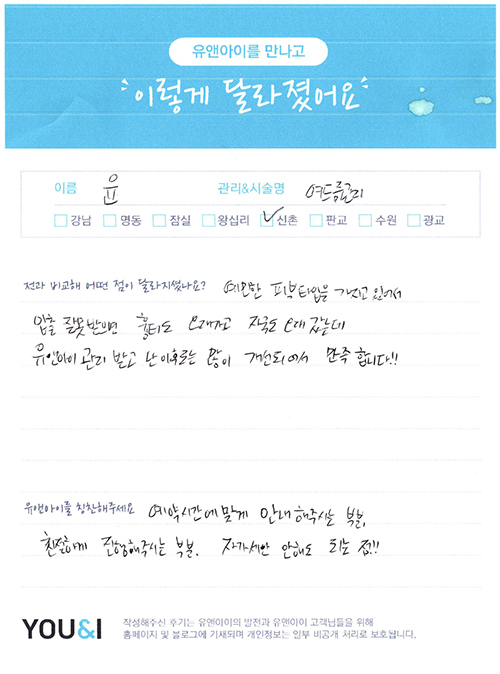 유앤아이를 만나고
이렇게 달라졌어요
이름 윤 관리&시술명 여드름관리
강남 명동 잠실 왕십리 신촌 판교 수원 광교
전과 비교해 어떤 점이 달라지셨나요? 예민한 피부타입을 가지고 있어서
압출 잘못받으면 흉터도 오래가고 자국도 오래 갔는데
유앤아이 관리 받고 난 이후로는 많이 개선되어서 만족합니다!!
유앤아이를 칭찬해주세요 예약시간에 맞게 안내해주시는 부분,
친절하게 진행해주시는 부분. 자가세안 안해도 되는 점!!
YOU&I
작성해주신 후기는 유앤아이의 발전과 유앤아이 고객님들을 위해
홈페이지 및 블로그에 기재되며 개인정보는 일부 비공개 처리로 보호됩니다.